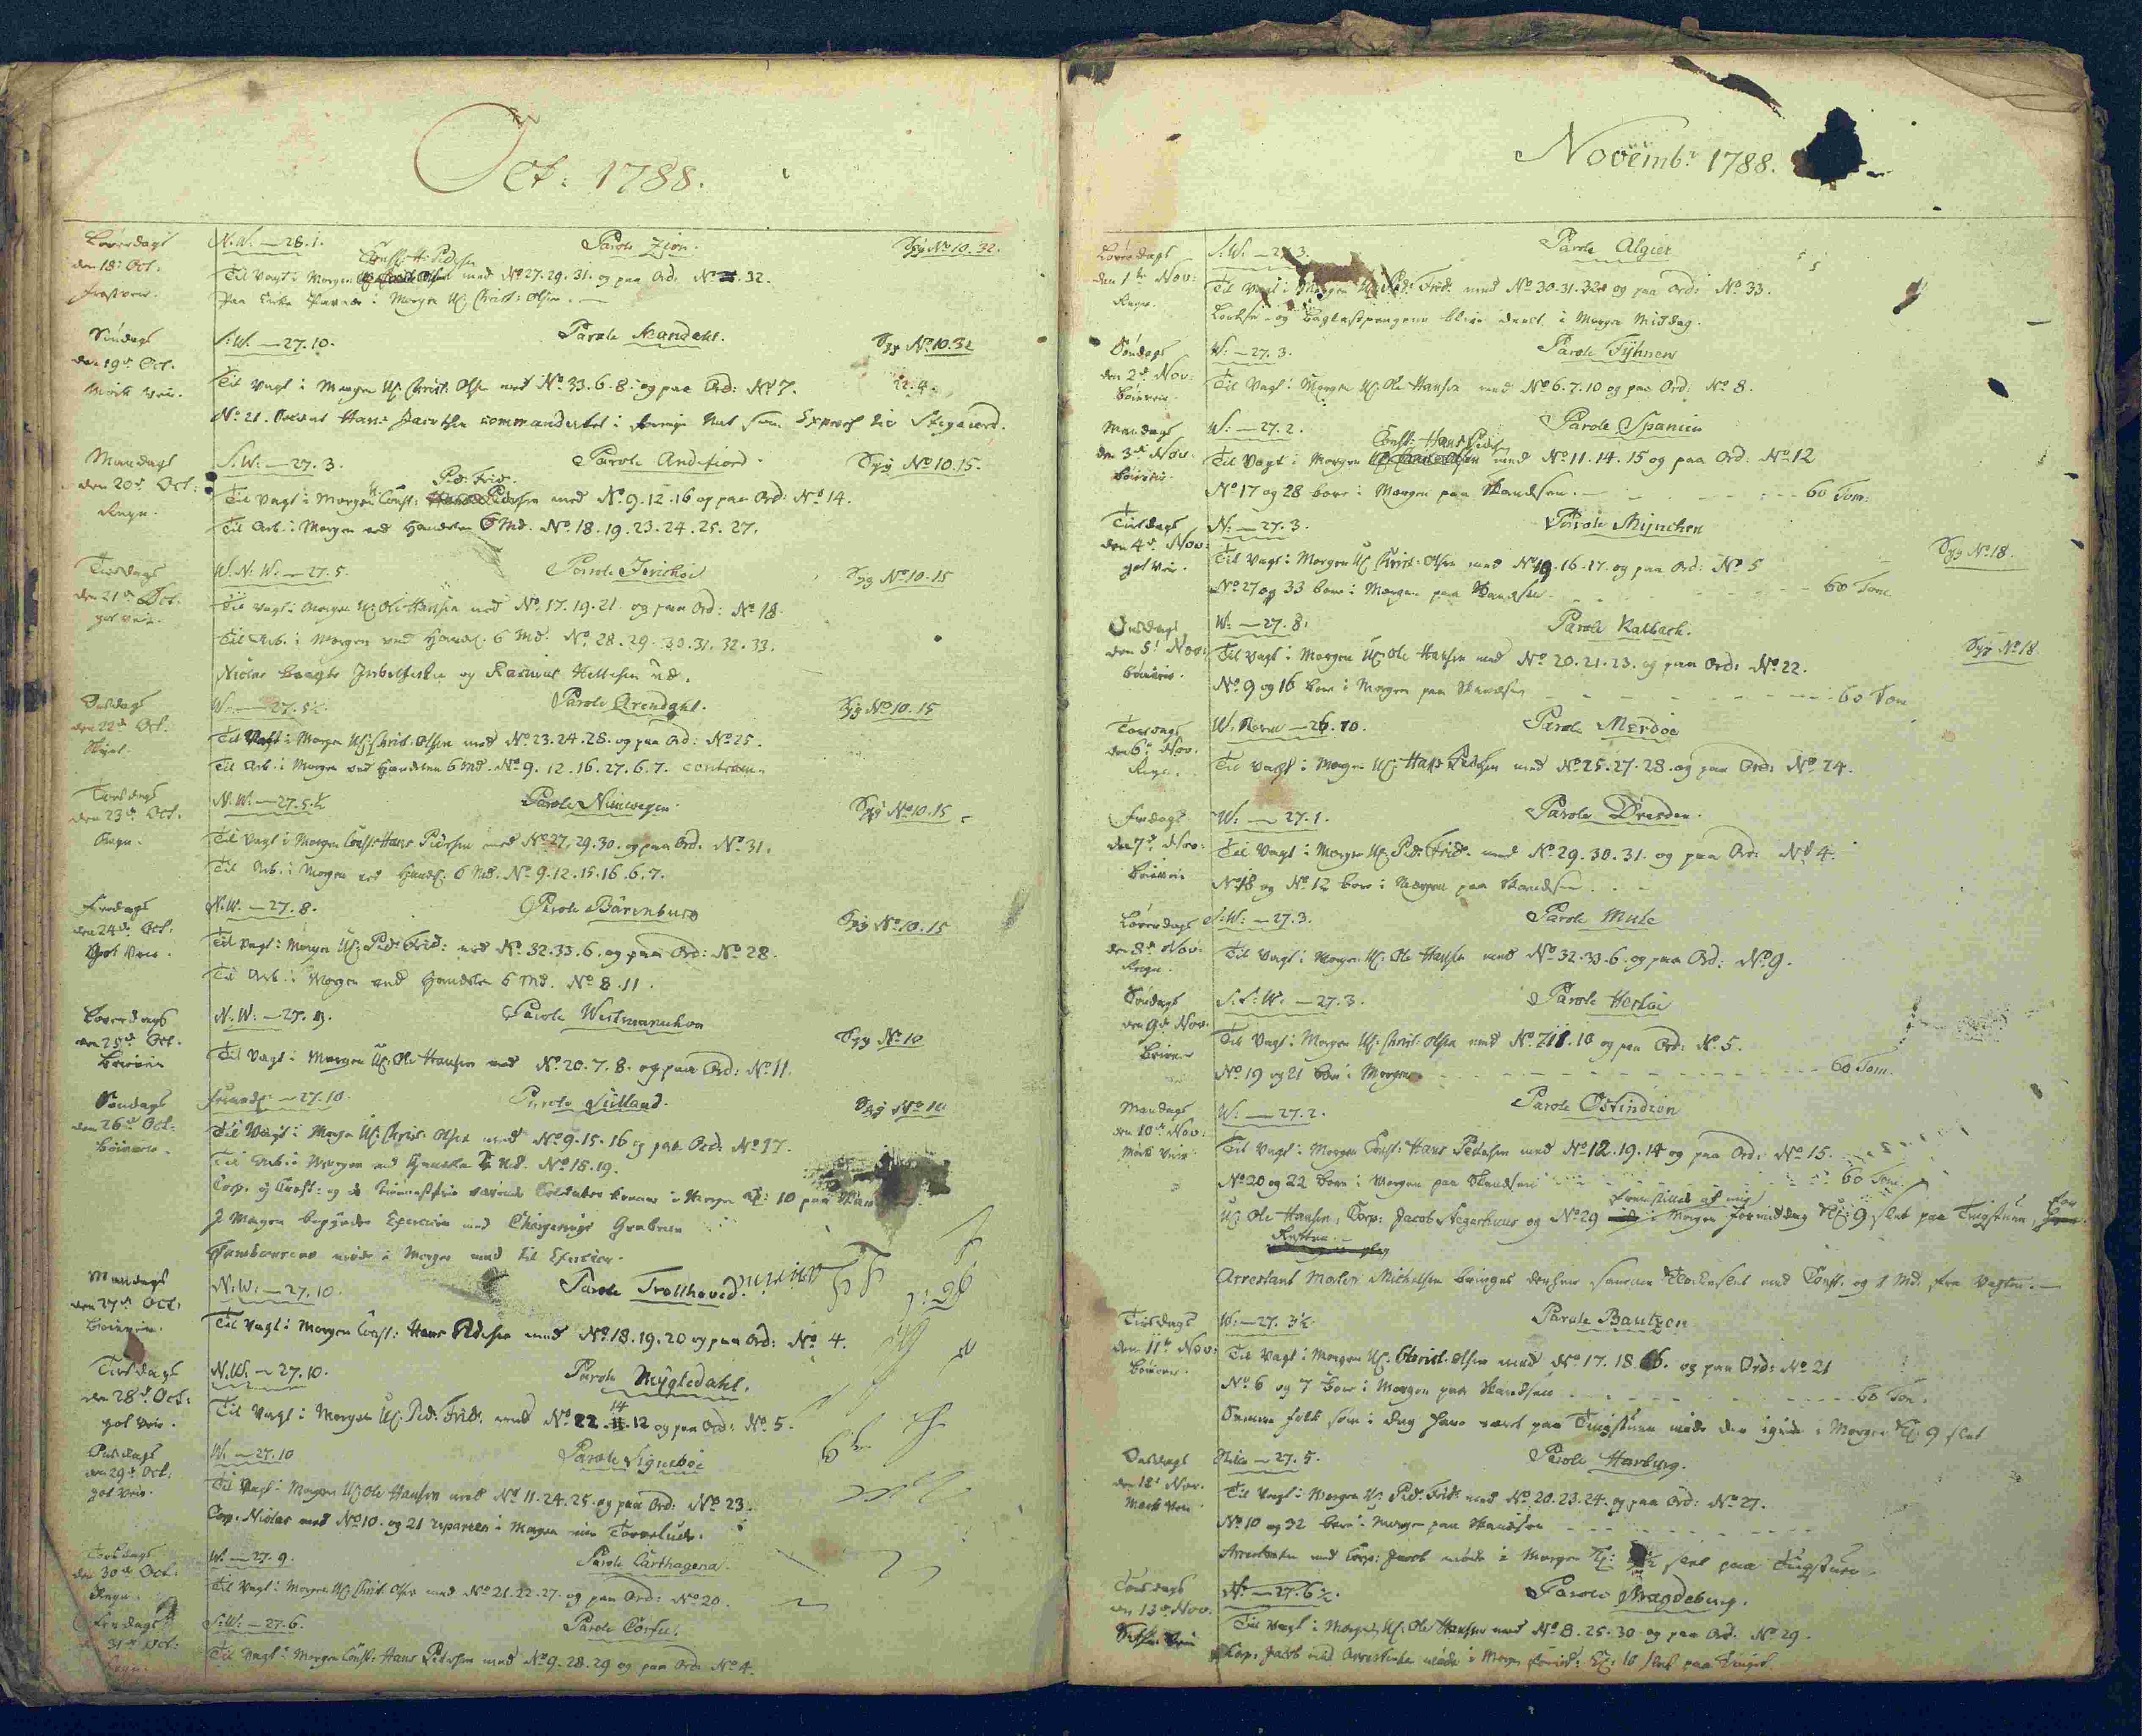 Oct: 1788.
Löverdags N.W. — 28.1. Parole Zion. Syg No 10.32.
den 18: Oct. Const: H: Pedersen
Frostveir. Til Vagt i Morgen med No 27.29.31. og paa Ord. No 32.
i Morgen UC: Christ: Olsen. —
Söndags S:W. — 27.10. Parole Mandahl. Syg No 10.32
den 19de Oct. 22.4.
Mörk Veir. Til Vagt i Morgen UC: Christ. Olsen med No 33.6.8. og paa Ord: No 7.
No 21. Hans Jacobsen commanderet i som Expres til
Mandags S.W. — 27.3. Parole Andefiord. Syg No 10.15.
den 20de Oct: Ped: Frid:
Regn. Til Vagt i Morgen Const: Pedersen med No 9.12.16 og paa Ord: No 14.
Til Arb. i Morgen ved Handelen 6 Md. No 18.19.23.24.25.27.
Tirsdags W.N.W. — 27.5. Parole Jerichoe Syg No 10.15
den 21de Oct.
got Veir. Til Vagt i Morgen UC: Ole Hansen med No 17.19.21 og paa Ord: No 18.
Til Arb. i Morgen ved Handel. 6 Md. No 28.29.30.31.32.33.
Niclas og Rasmus
Onsdags W. — 27.5½. Parole Arendahl. Syg No 10.15
den 22de Oct:
Til Vagt i Morgen UC: Christ. Olsen med No 23.24.28. og paa Ord: No 25.
Til Arb. i Morgen ved Handelen 6 Md. No 9.12.16.27.6.7.
Torsdags N.W. — 27.5.½ Parole Nimwegen. Syg No 10.15
den 23de Oct.
Regn. Til Vagt i Morgen Const: Hans Pedersen med No 27.29.30. og paa Ord. No 31.
Til Arb. i Morgen ved Handl. 6 Md. No 9.12.15.16.6.7.
Fredags N.W. — 27.8. Parole Bärenburg Syg No 10.15
den 24de Oct.
Got Veir. Til Vagt i Morgen UC: Ped: Frid: med No 32.33.6. og paa Ord: No 28.
Til Arb. i Morgen ved Handelen 6 Md. No 8.11.
Löverdags N.W: — 27.9. Parole Westmanshoe
den 25de Oct. Syg No 10
Til Vagt i Morgen UC: Ole Hansen med No 20.7.8. og paa Ord: No 11.
Söndags — 27.10. Parole Syg No 10
den 26de Oct: Til Vagt i Morgen UC: Christ: Olsen med No 9.15.16 og paa Ord: No 17.
Til Arb. i Morgen ved Handelen 2 Md. No 18.19.
Corp. og Const: og de Soldater i Morgen Kl: 10 paa
I Morgen begynder Exercice med
Tambourerne möde i Morgen med til Exercice.
Mandags N:W: — 27.10. Parole Trollhoved.
den 27de Oct:
Til Vagt i Morgen Const: Hans Pedersen med No 18.19.20 og paa Ord: No 4.
Tirsdags N.W. — 27.10. Parole Mygledahl.
den 28de Oct: 14
got Veir. Til Vagt i Morgen UC: Ped: Frid: med No 22. 12 og paa Ord: No 5.
Onsdags W. — 27.10 Parole Signeböe
den 29de Oct:
got Veir. Til Vagt i Morgen UC: Ole Hansen med No 11.24.25. og paa Ord: No 23.
Corp. Niclas med No 10. og 21 repareer i Morgen
Torsdags W. — 27.9. Parole Carthagena.
den 30te Oct:
Regn. Til Vagt i Morgen UC: Christ. Olsen med No 21.22.27. og paa Ord: No 20.
Fredags S:W: — 27.6. Parole Corfu.
31te Oct:
Regn. Til Vagt i Morgen Const: Hans Pedersen med No 9.28.29 og paa Ord. No 4.
Novembr 1788.
Löverdags S.W. — 27.3. Parole Algier
den 1te Nov:
Regn. Til Vagt i Morgen UC: Ped: Frid: med No 30.31.32 og paa Ord: No 33.
og i Morgen Middag.
Söndags W: — 27.3. Parole Fyhnen
den 2de Nov: Til Vagt i Morgen UC: Ole Hansen med No 6.7.10 og paa Ord: No 8.
Mandags W: — 27.2. Parole Spanien
den 3de Nov. Const: Hans Peders:
Til Vagt i Morgen med No 11.14.15 og paa Ord: No 12
No 17 og 28 bære i Morgen paa Skandsen. — 60 Törv:
Tirsdags N: — 27.3. Parole Mynchen
den 4de Nov: Syg No 18.
got Veir. Til Vagt i Morgen UC: Christ: Olsen med No 19.16.17. og paa Ord: No 5
No 27 og 33 bære i Morgen paa Skandsen 60 Törv.
Onsdags W: — 27.8. Parole Kalbach.
den 5t Nov: Syg No 18.
Til Vagt i Morgen UC: Ole Hansen med No 20.21.23. og paa Ord: No 22.
No 9 og 16 bære i Morgen paa Skandsen 60 Törv
Torsdags W. — 26.10. Parole Merdöe
den 6te Nov.
Regn. Til Vagt i Morgen UC: Hans Pedersen med No 25.27.28. og paa Ord: No 24.
Fredags W: — 27.1. Parole Dresden.
den 7de Nov: Til Vagt i Morgen UC: Ped: Frid: med No 29.30.31. og paa Ord: No 4.
No 18 og No 12 bære i Morgen paa Skandsen
Löverdags S:W: — 27.3. Parole Mule
den 8de Nov:
Regn. Til Vagt i Morgen UC: Ole Hansen med No 32.33.6. og paa Ord: No 9.
Söndags S.S:W. — 27.3. Parole Hestöe
den 9de Nov. Til Vagt i Morgen UC: Christ: Olsen med No 7.18.10 og paa Ord: No 5.
No 19 og 21 bær i Morgen 60 Törv.
Mandags W: — 27.2. Parole Ostindien
den 10de Nov:
Mörk Veir Til Vagt i Morgen Const: Hans Pedersen med No 12.19.14 og paa Ord: No 15.
No 20 og 22 bære i Morgen paa Skandsen 60 Törv.
fremstilles af mig for
UC: Ole Hansen, Corp: Jacob og No 29 i Morgen Formiddag Kl: 9 slet paa Tingstuen
Retten. —
Arrestant Morten Michelsen bringes samme Klokkeslet med Const. og 1 Md. fra Vagten. —
Tirsdags W: — 27.3½. Parole Bautzen
den 11te Nov: Til Vagt i Morgen UC: Christ. Olsen med No 17.18. og paa Ord: No 21
No 6 og 7 bære i Morgen paa Skandsen 60 Törv.
Samme Folk som i Dag have været paa Tingstuen möde der igien i Morgen Kl: 9 slet
Onsdags Stille — 27.5. Parole Harburg.
den 12te Nov.
Mörk Veir Til Vagt i Morgen UC: Ped: Frid: med No 20.23.24. og paa Ord: No 27.
No 10 og 32 bære i Morgen paa Skandsen
Arrestanten med Corp: Jacob möde i Morgen Kl: slet paa Tingstuen.
Torsdags — 27.6½. Parole Magdeburg.
13de Nov.
Til Vagt i Morgen UC: Ole Hansen med No 8.25.30 og paa Ord: No 29.
Corp: Jacob med Arrestanten möde i Morgen Formid: Kl: 10 slet paa Tinget